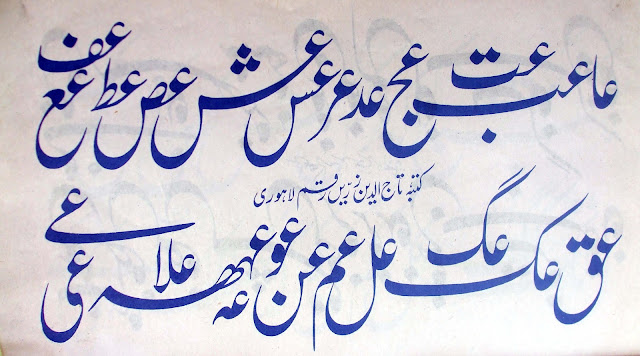 عا عب عت عج عد عر عس عش عص عط عع عف
کتبہ تاج الدین زریں رقم لاہوری
عق عک عگ عل عم عن عو عہ عہہ علا ء عی عے